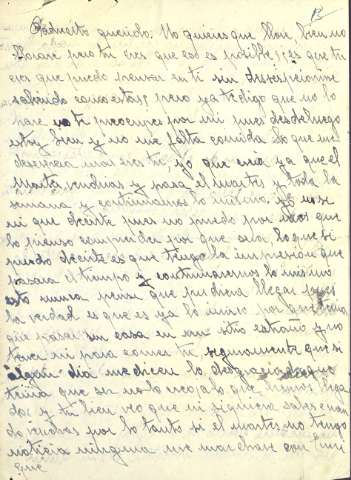 Padrecito querido: No quieres que llore bien no
llorare pero tu crees que eso es posible, es que tu
crees que puedo pensar en ti sin desesperarme
sabiendo como estas, pero ya te digo que no lo
hare no te preocupes por mi pues desde luego
estoy bien y no me falta comida lo que me
desespera mas eres tu, yo que creia ya que el
Martes vendrias y pasa el martes y toda la
semana y continuamos lo mismo, yo no se
ni que decirte pues no puedo por mas que
lo pienso comprender por que sera, lo que si
puedo decirte es que tengo la impresión que
pasara el tiempo y continuaremos lo mismo
esto nunca pense que pudiera llegar pues
la verdad es que es ya lo unico por
que pasar en casa en un sitio extraño y no
tener ni para comer tu seguramente que si
algún dia me dicen lo desgraciada que
tenia que ser no lo creo, a lo que hemos llega
do, y tu bien veo que ni siquiera sabes cuan
do vendras por lo tanto si el martes no tengo
noticia ninguna me marchare con
que